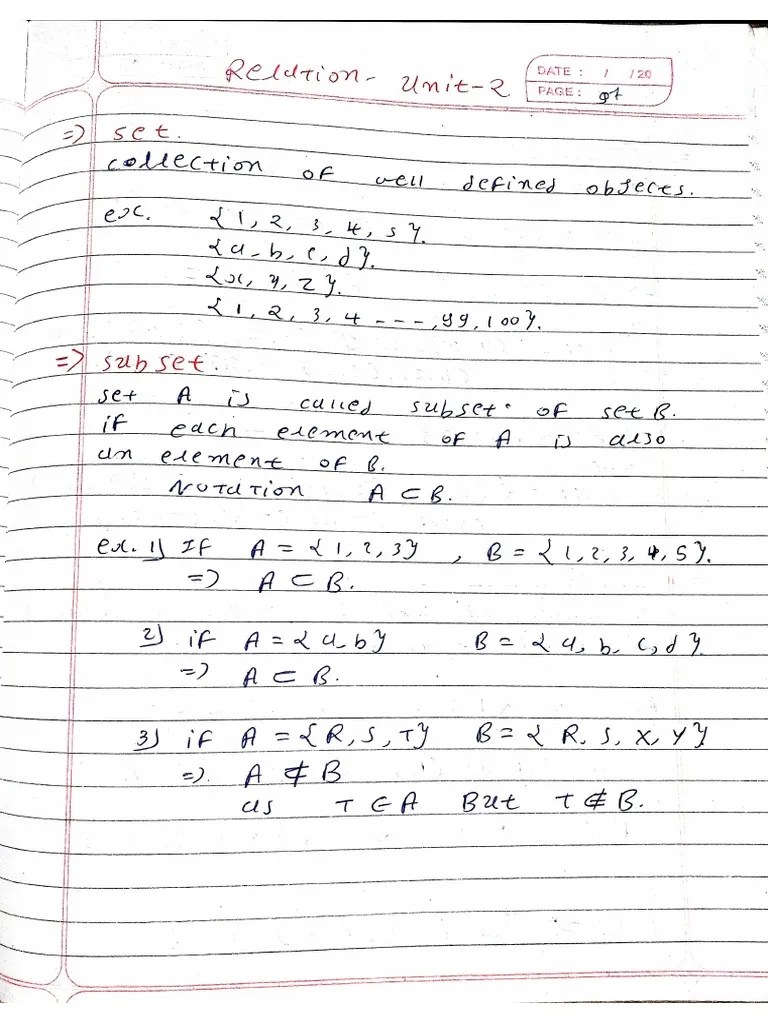 Relation - Unit-2
DATE : / /20
PAGE: 01
=> set.
collection of well defined objects.
ex. {1, 2, 3, 4, 5}.
{a, b, c, d}.
{x, y, z}.
{1, 2, 3, 4 ---, 99, 100}.
=> subset.
set A is called subset of set B.
if each element of A is also
an element of B.
Notation A ⊂ B.
ex. 1) If A = {1, 2, 3} , B = {1, 2, 3, 4, 5}.
=> A ⊂ B.
2) if A = {a, b} B = {a, b, c, d}.
=> A ⊂ B.
3) if A = {R, S, T} B = {R, S, X, Y}
=>. A ⊄ B
as T ∈ A But T ∉ B.